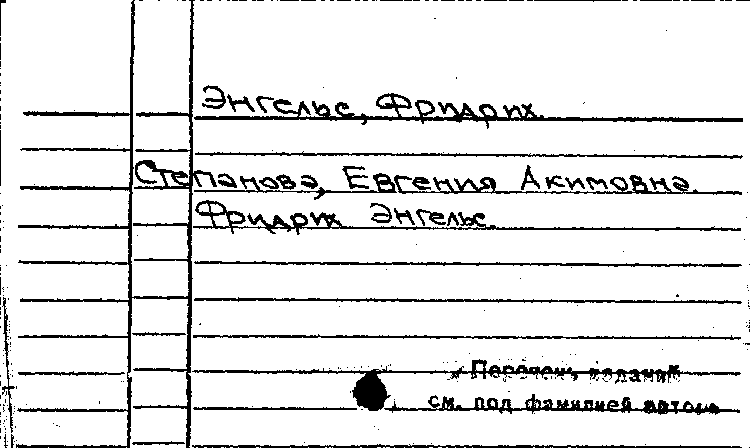 Энгельс, Фридрих.
Степанова, Евгения Акимовна.
Фридрих Энгельс.
Перечень изданий
см. под фамилией автора